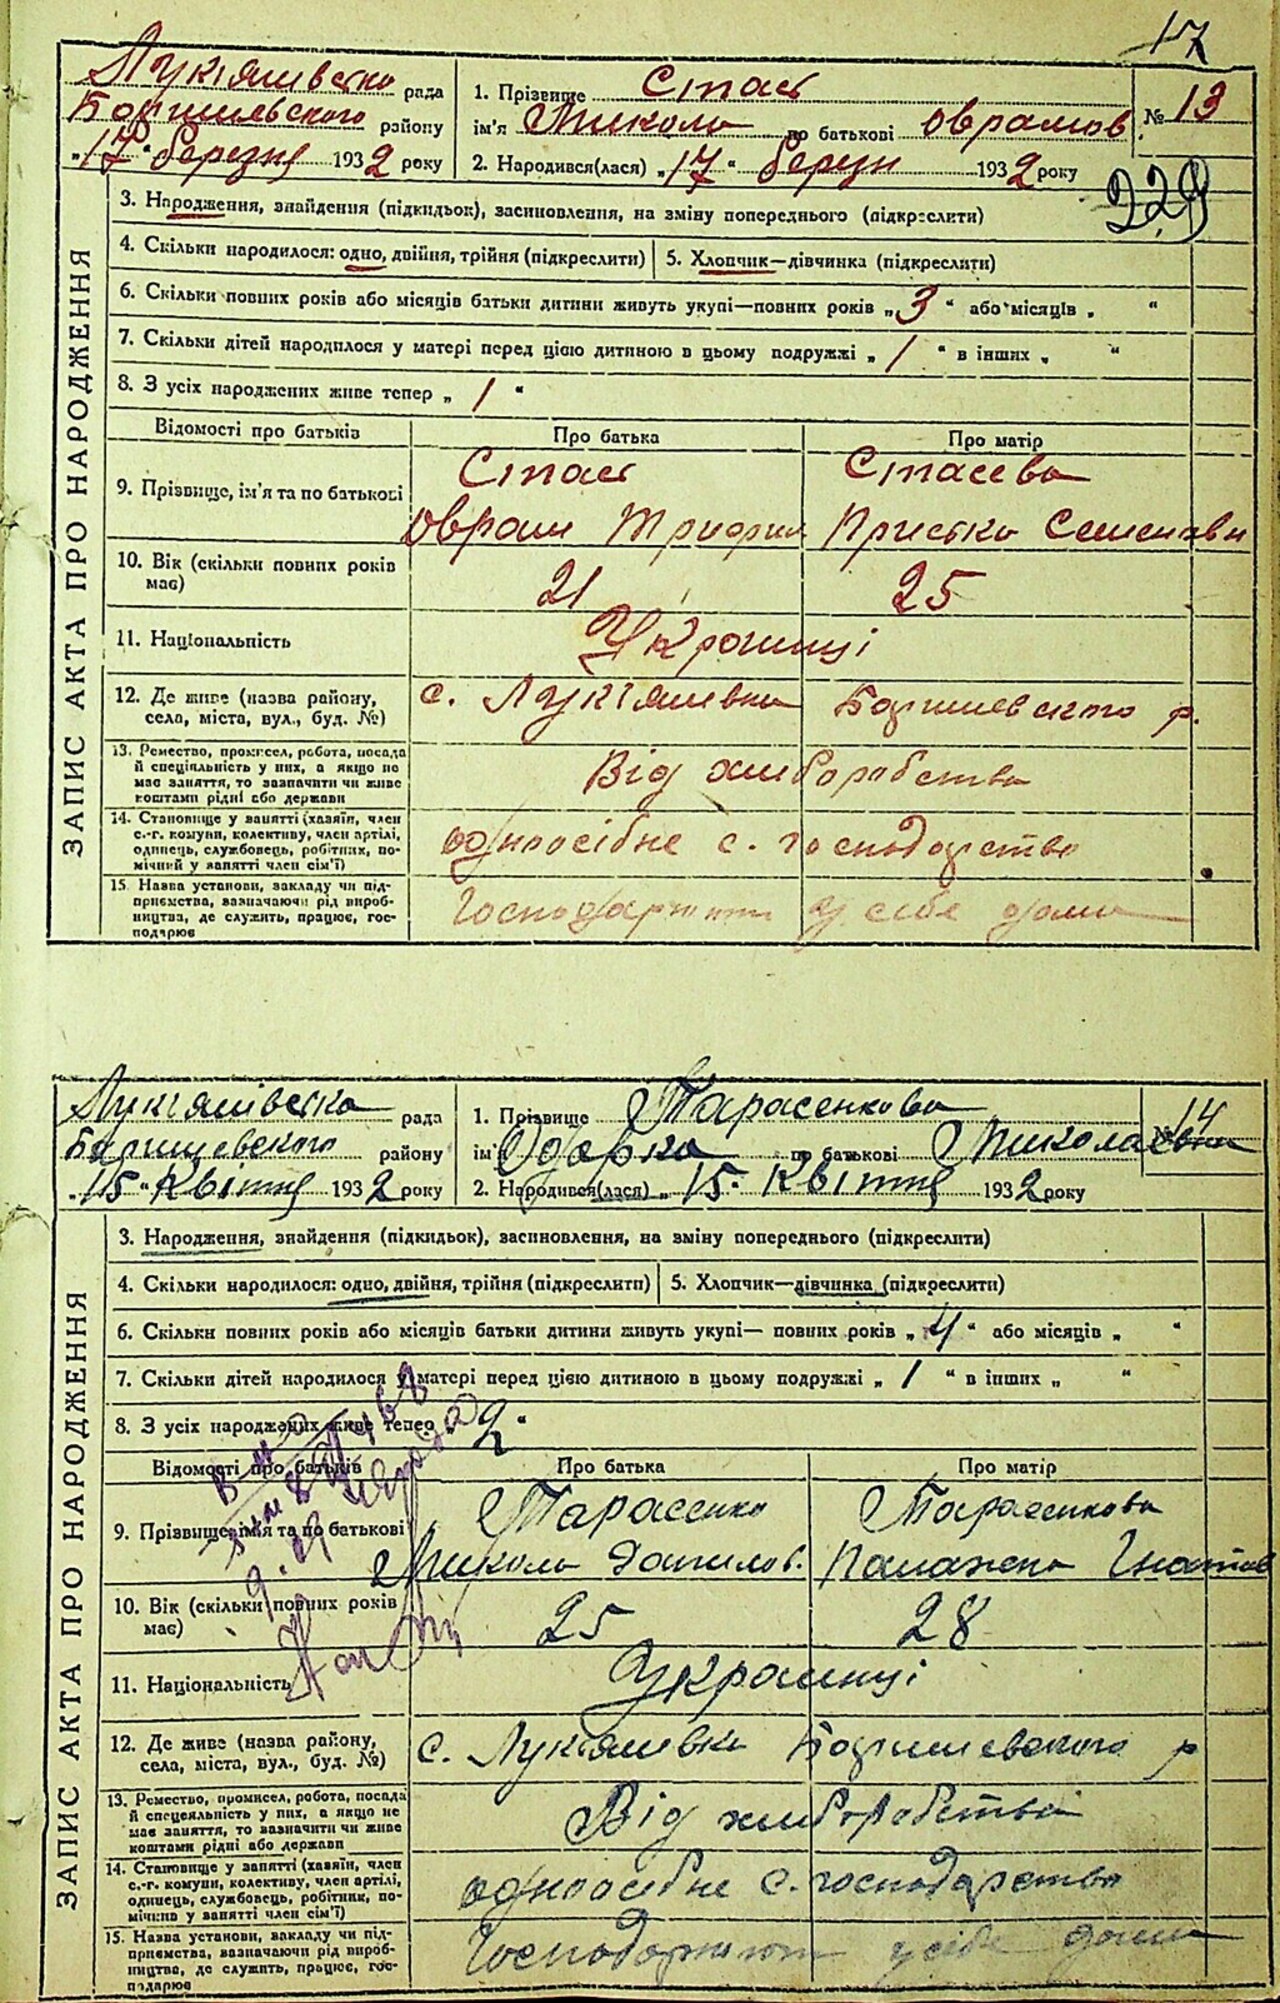 17
Лукіяшівська рада
Баришевського району
„17“ березня 1932 року
1. Прізвище Стась
ім'я Микола по батькові Оврамов
2. Народився(лася) „17“ березн 1932 року
№ 13
229
ЗАПИС АКТА ПРО НАРОДЖЕННЯ
3. Народження, знайдення (підкидьок), засиновлення, на зміну попереднього (підкреслити)
4. Скільки народилося: одно, двійня, трійня (підкреслити) 5. Хлопчик—дівчинка (підкреслити)
6. Скільки повних років або місяців батьки дитини живуть укупі—повних років „3“ або місяців „ “
7. Скільки дітей народилося у матері перед цією дитиною в цьому подружжі „1“ в інших „ “
8. З усіх народжених живе тепер „1“
Відомості про батьків Про батька Про матір
9. Прізвище, ім'я та по батькові
Стась Стасева
Оврам Трифил Пристка Семенівн
10. Вік (скільки повних років
має) 21 25
11. Національність Українці
12. Де живе (назва району,
села, міста, вул., буд. №) с. Лукіяшівка Баришевського р.
13. Ремество, промисел, робота, посада
й спеціяльність у них, а якщо не
має заняття, то зазначити чи живе
коштами рідні або держави
Від хліборобства
14. Становище у занятті (хазяїн, член
с.-г. комуни, колективу, член артілі,
одинець, службовець, робітник, по-
мічний у занятті член сім'ї)
одноосібне с. господарство
15. Назва установи, закладу чи під-
приємства, зазначаючи рід вироб-
ництва, де служить, працює, гос-
подарює
Господарюють у себе дома
Лукіяшівська рада
Баришевського району
„15“ Квітня 1932 року
1. Прізвище Тарасенкова
ім'я Одарка по батькові Миколаєвна
2. Народився(лася) „15. Квітня 1932 року
№ 14
ЗАПИС АКТА ПРО НАРОДЖЕННЯ
3. Народження, знайдення (підкидьок), засиновлення, на зміну попереднього (підкреслити)
4. Скільки народилося: одно, двійня, трійня (підкреслити) 5. Хлопчик—дівчинка (підкреслити)
6. Скільки повних років або місяців батьки дитини живуть укупі— повних років „4“ або місяців „ “
7. Скільки дітей народилося у матері перед цією дитиною в цьому подружжі „1“ в інших „ “
8. З усіх народжених живе тепер „2“
Відомості про батьків Про батька Про матір
9. Прізвище, ім'я та по батькові
Тарасенко Тарасенкова
Микола Данилов. Палажка Гнатов
10. Вік (скільки повних років
має) 25 28
11. Національність Українці
12. Де живе (назва району,
села, міста, вул., буд. №) с. Лукіяшівка Баришевського р
13. Ремество, промисел, робота, посада
й спецеяльність у них, а якщо не
має заняття, то зазначити чи живе
коштами рідні або держави
Від хліборобства
14. Становище у занятті (хазяїн, член
с.-г. комуни, колективу, член артілі,
одинець, службовець, робітник, по-
мічний у занятті член сім'ї)
одноосібне с. господарство
15. Назва установи, закладу чи під-
приємства, зазначаючи рід вироб-
ництва, де служить, працює, гос-
подарює
Господарюют у себе дома